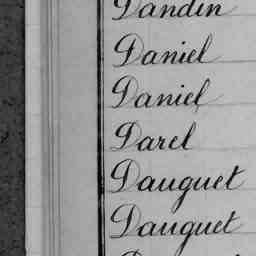 Dandin
Daniel
Daniel
Darel
Dauguet
Dauguet